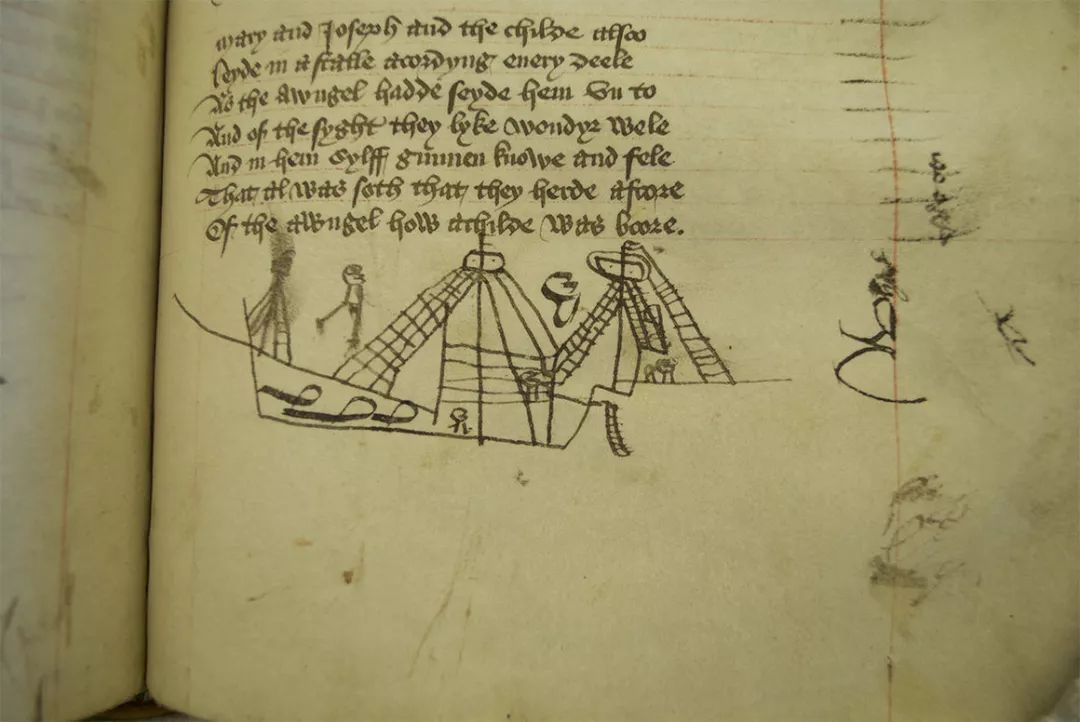 mary and Joseph and the childe alsoo
leyde in a stalle acordyng euery deele
As the awngel hadde seyde hem vn to
And of the syght they lyke wondyr wele
And in hem sylff gunnen knowe and fele
That al was soth that they herde afoore
Of the awngel how a childe was boore.